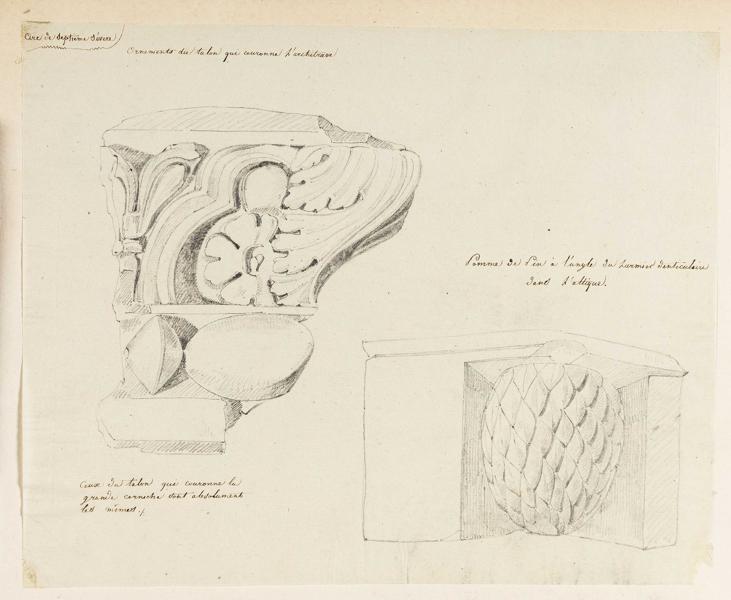 Arc de Septime Sévère
Ornements du talon qui couronne l'architrave
Pomme de Pin à l'angle du larmier denticulaire
dans l'attique.
Ceux du talon qui couronne la
grande corniche sont absolument
les mêmes.